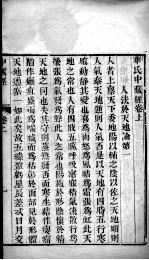 華氏中藏經卷上
人法於天地論第一
人者上稟天下委地陽以輔之陰以佐之天地順則
人氣泰天地逆則人氣否是以天地有四時五行寒
暄動靜其變也喜為雨怒為風結為霜張為虹此天
地之常也人有四肢五臟呼吸寤寐精氣流散行為
榮張為氣發為聲此人之常也陽施於形陰慎於精
天地之同也失其守則蒸而熱發否而寒生結作癭瘤
陷作癰疽盛而為喘減而為枯彰於面部見於形體
天地通塞一如此矣故五緯盈虧星辰差忒日月交
中藏經
卷上